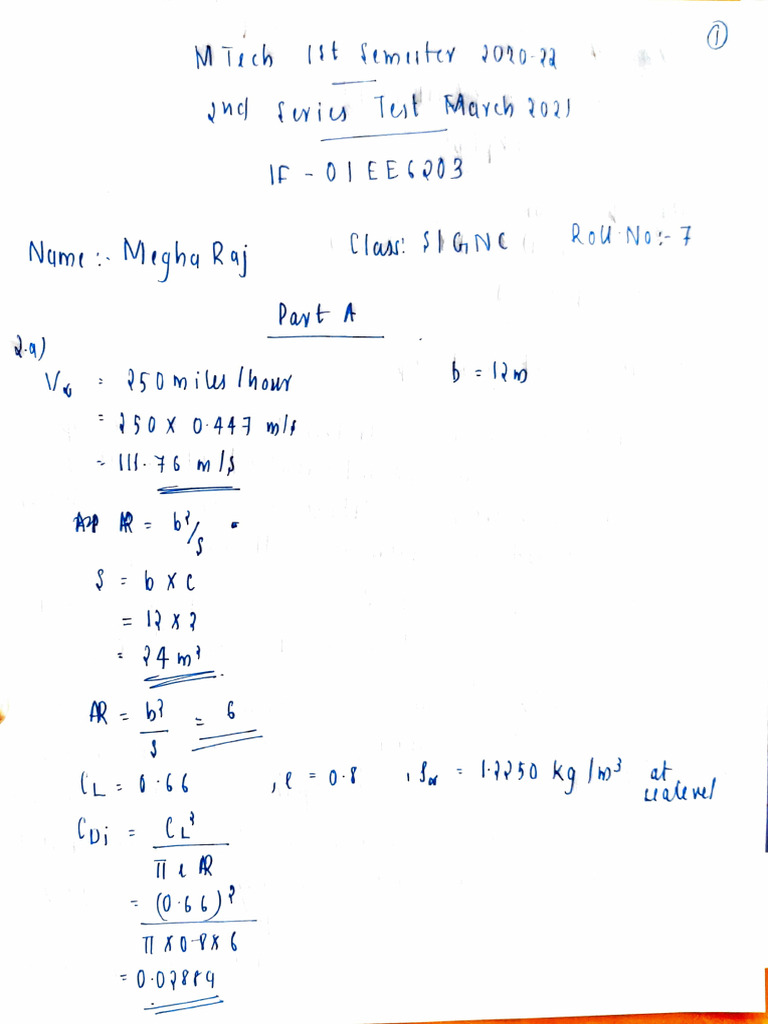 ①
MTech 1st Semester 2020-22
2nd Series Test March 2021
IF - 01EE6203
Name:- Megha Raj Class: S1 GNC Roll No:- 7
Part A
2.a)
V∞ = 250 miles/hour b = 12m
= 250 × 0.447 m/s
= 111.76 m/s
AR = b²/s
S = b × c
= 12 × 2
= 24 m²
AR = b²/s = 6
CL = 0.66 , e = 0.8 , ρ∞ = 1.2250 kg/m³ at sealevel
CDi = CL²/π e AR
= (0.66)²/π × 0.8 × 6
= 0.02889